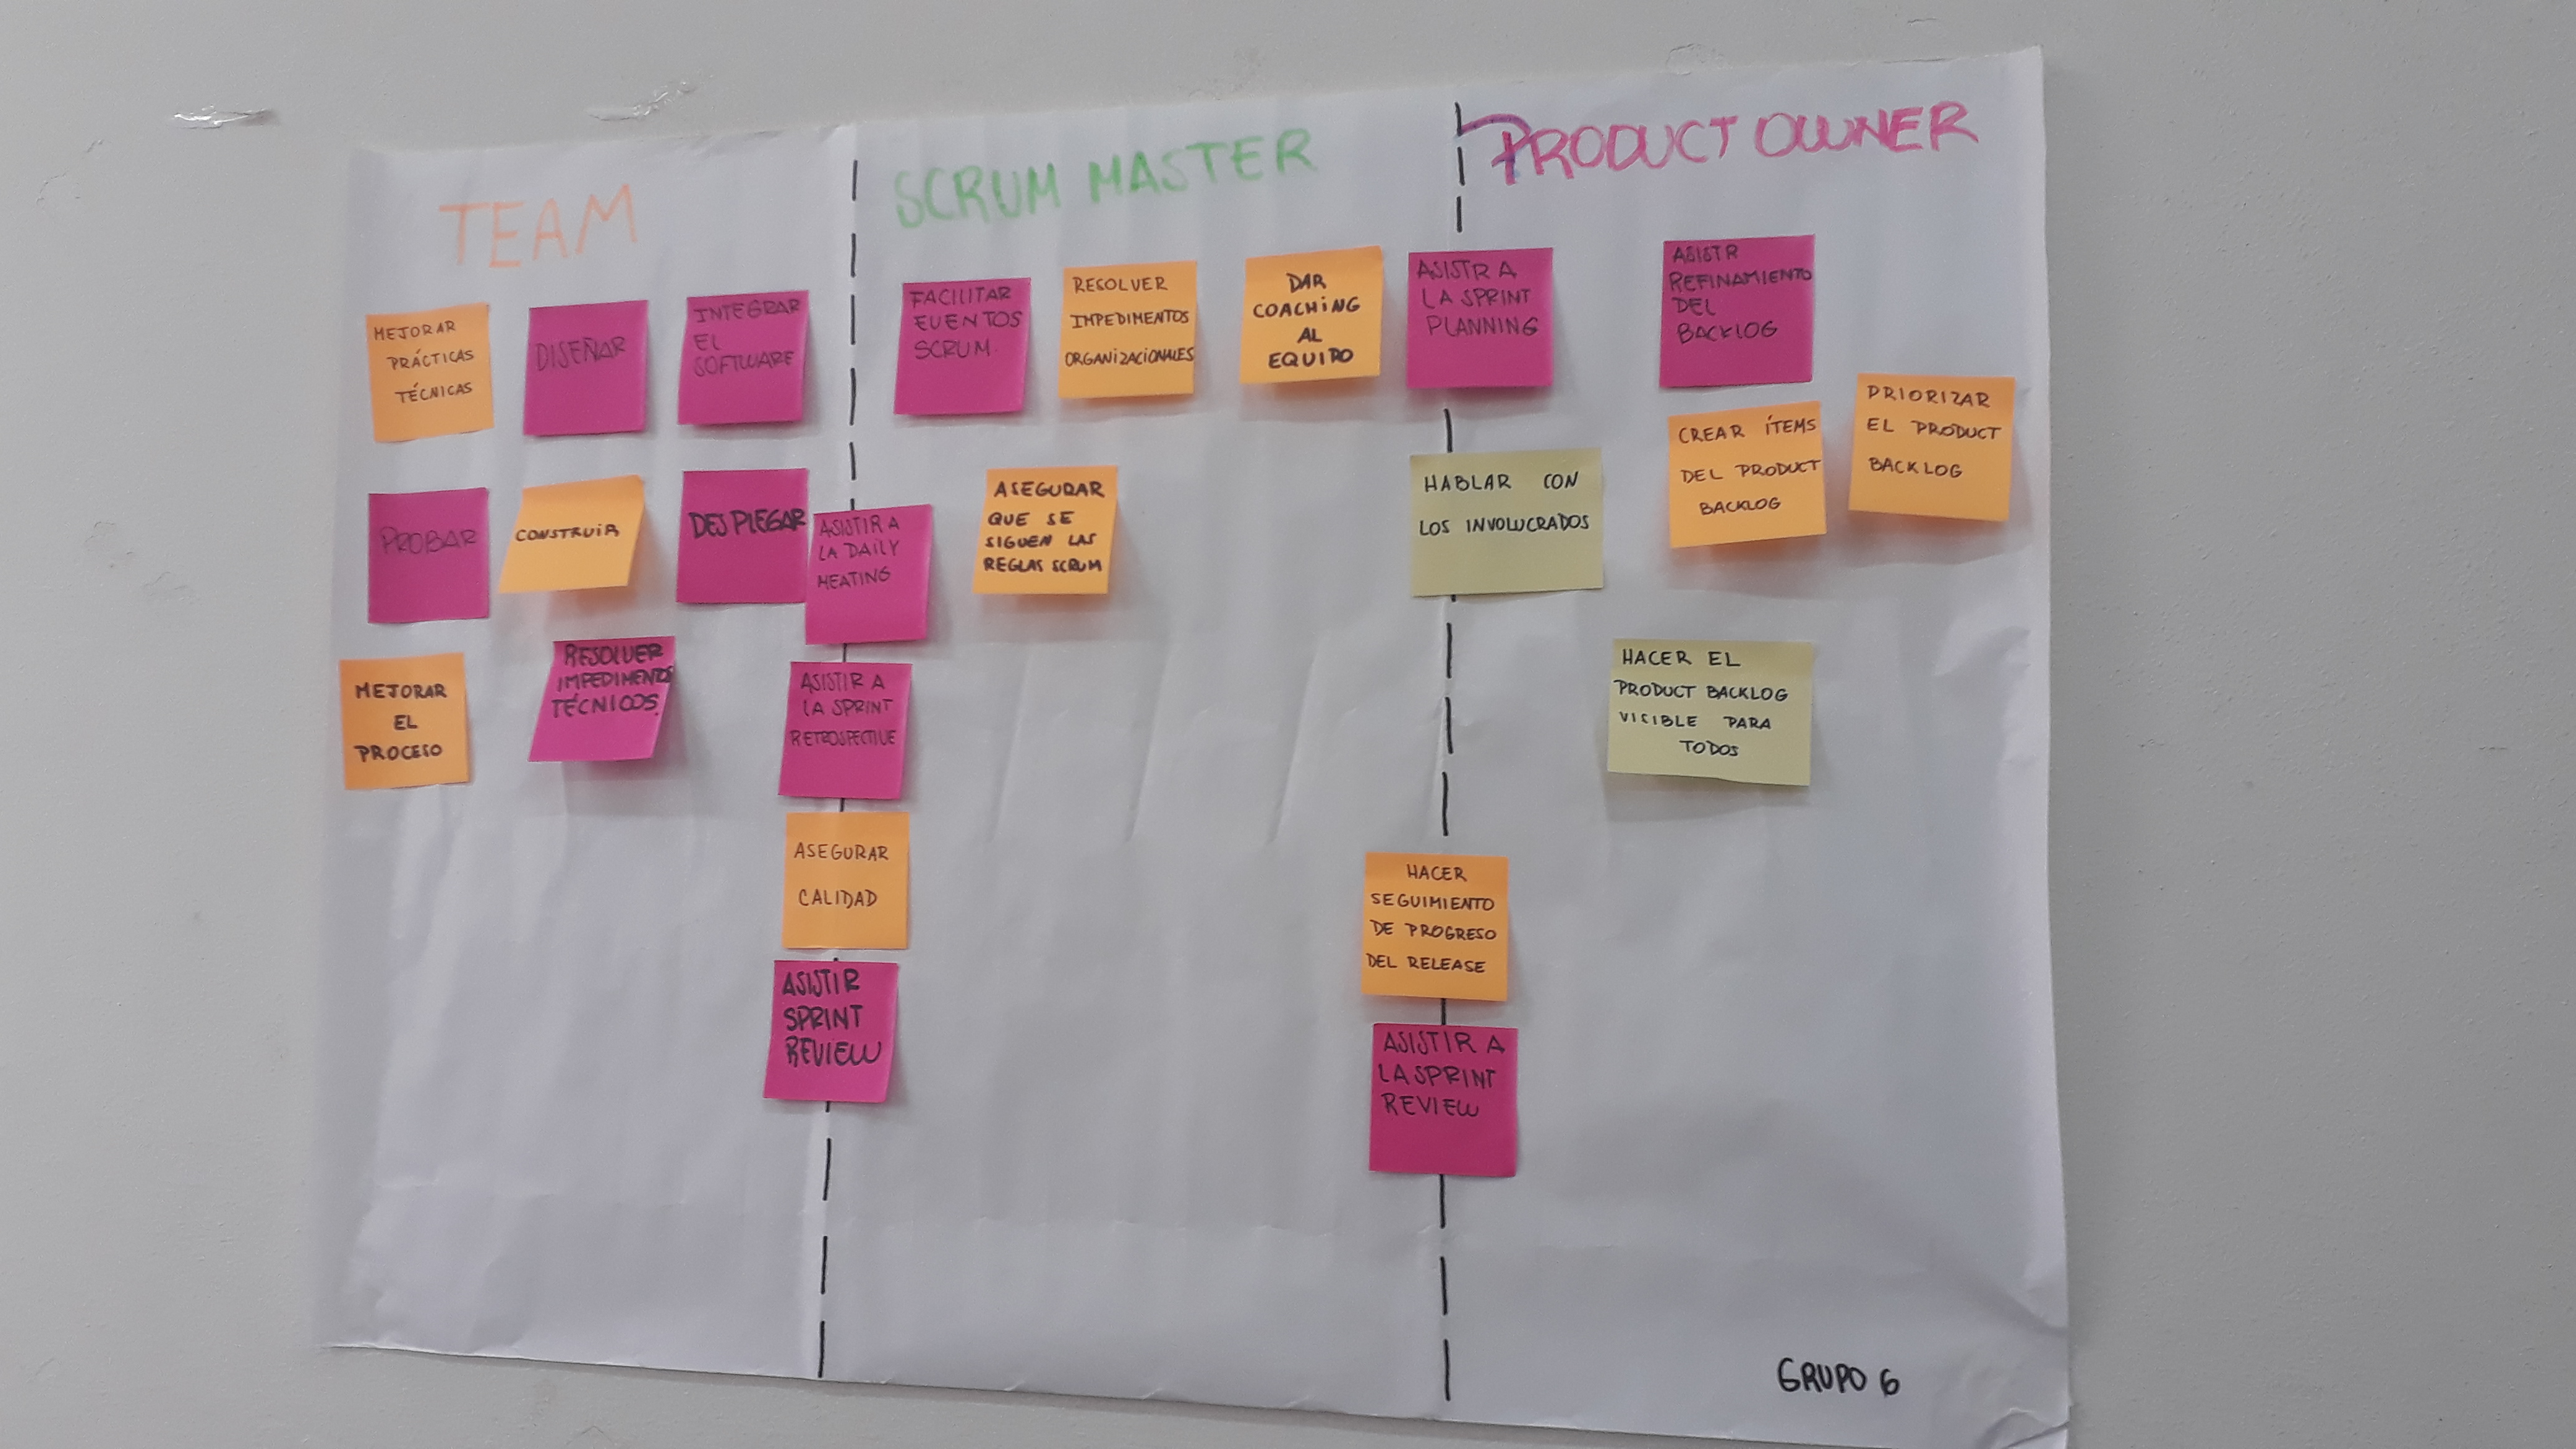 TEAM
SCRUM MASTER
PRODUCT OWNER
MEJORAR
PRÁCTICAS
TÉCNICAS
DISEÑAR
INTEGRAR
EL
SOFTWARE
PROBAR
CONSTRUIR
DESPLEGAR
MEJORAR
EL
PROCESO
RESOLVER
IMPEDIMENTOS
TÉCNICOS
ASISTIR A
LA DAILY
MEATING
ASISTIR A
LA SPRINT
RETROSPECTIVE
ASEGURAR
CALIDAD
ASISTIR
SPRINT
REVIEW
FACILITAR
EVENTOS
SCRUM.
RESOLVER
IMPEDIMENTOS
ORGANIZACIONALES
DAR
COACHING
AL
EQUIPO
ASEGURAR
QUE SE
SIGUEN LAS
REGLAS SCRUM
ASISTR A
LA SPRINT
PLANNING
HABLAR CON
LOS INVOLUCRADOS
HACER
SEGUIMIENTO
DE PROGRESO
DEL RELEASE
ASISTIR A
LA SPRINT
REVIEW
ASISTR
REFINAMIENTO
DEL
BACKLOG
CREAR ÍTEMS
DEL PRODUCT
BACKLOG
PRIORIZAR
EL PRODUCT
BACKLOG
HACER EL
PRODUCT BACKLOG
VISIBLE PARA
TODOS
GRUPO 6